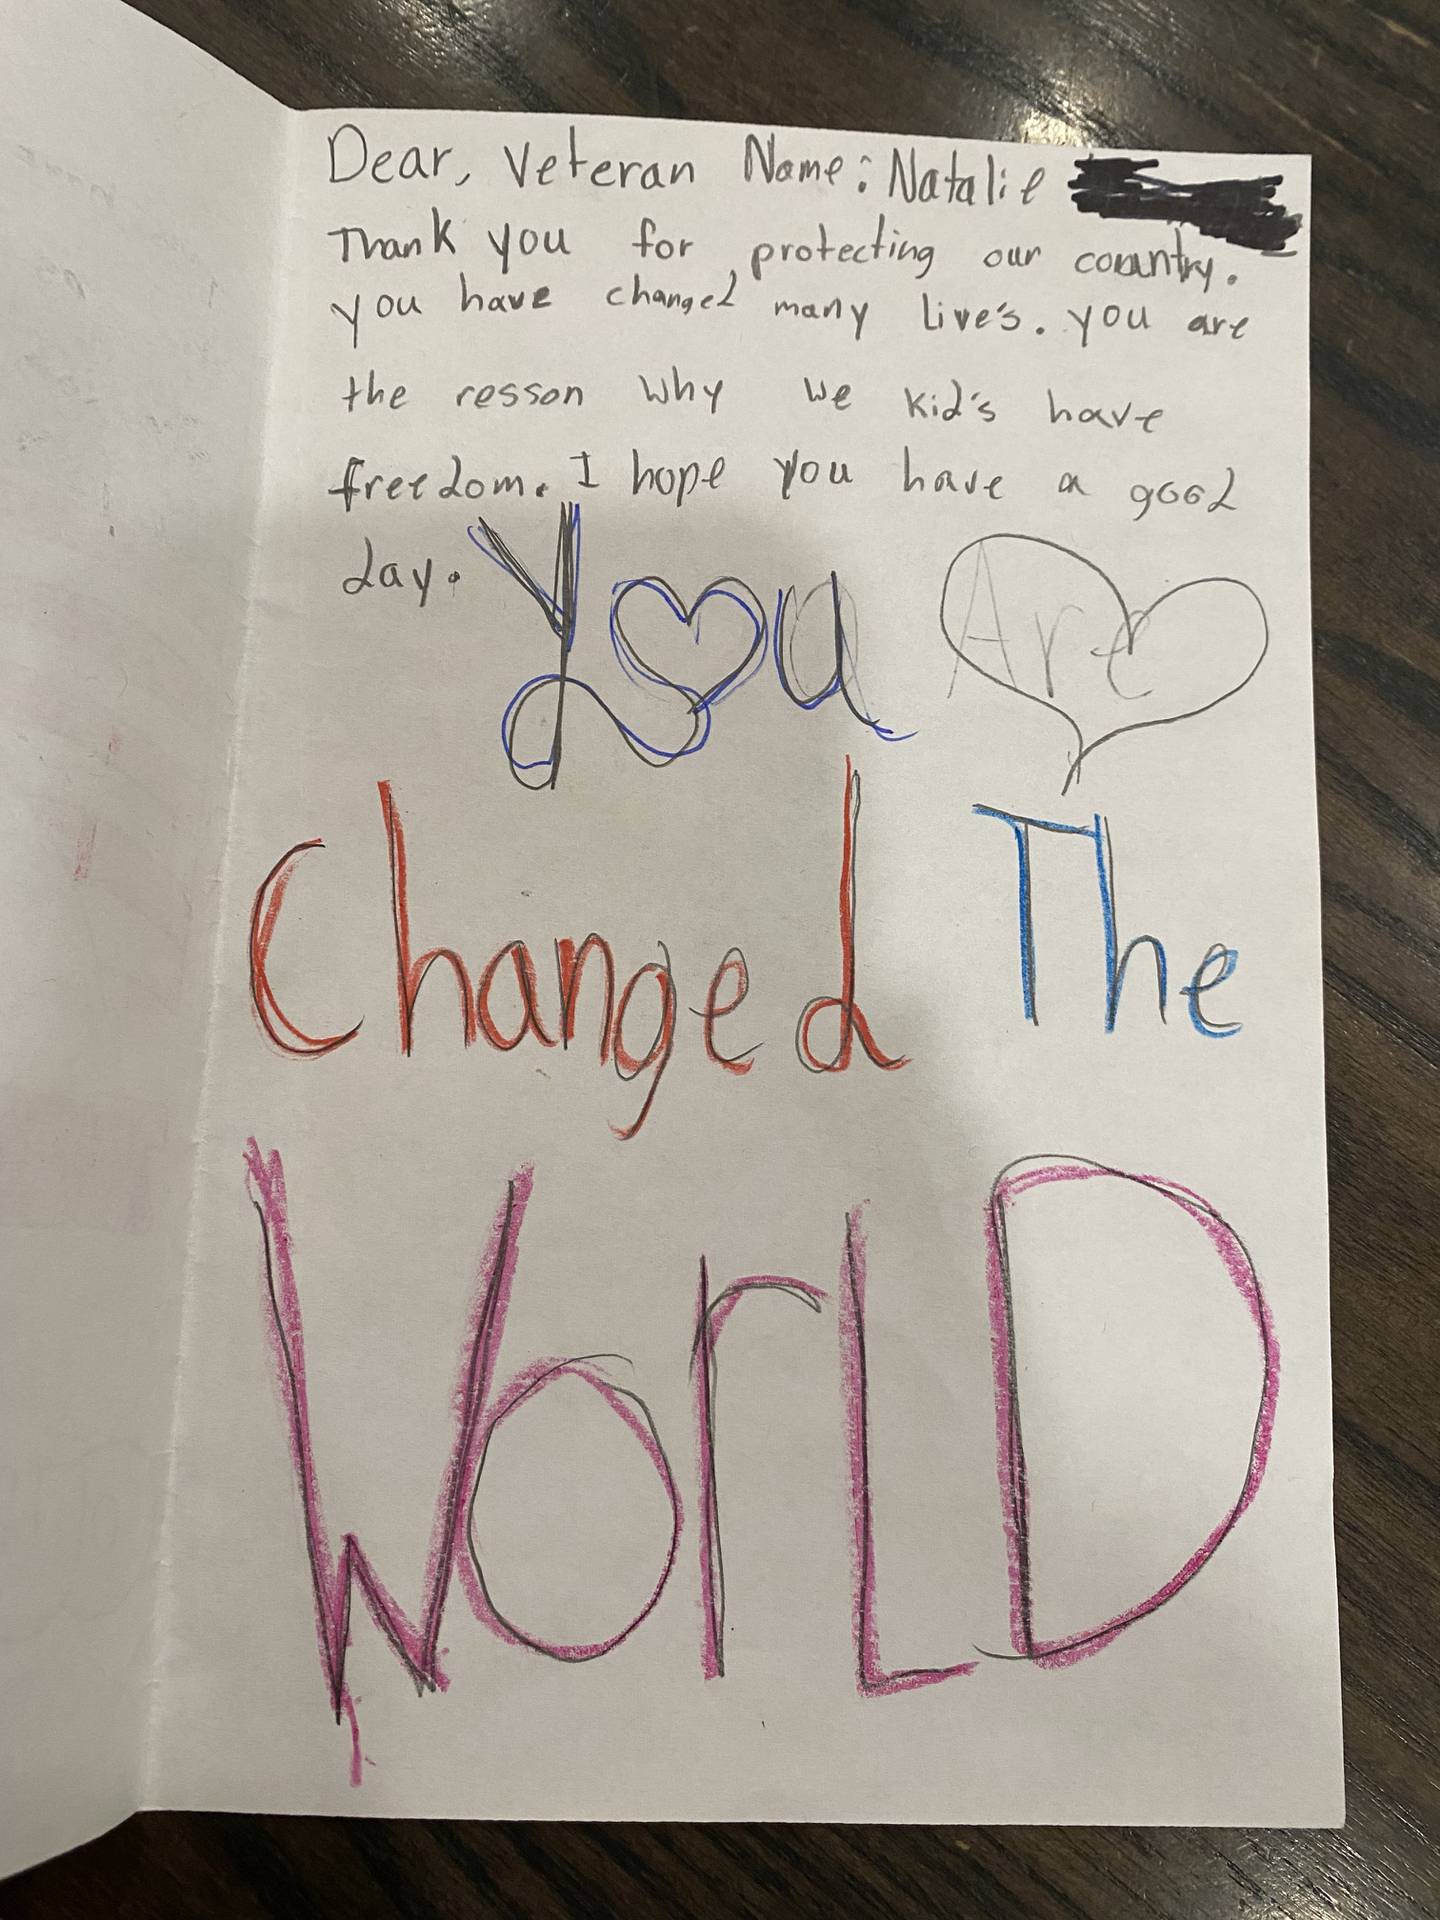 Dear, Veteran Name: Natalie
Thank you for protecting our country.
you have changed many live's. you are
the resson why we kid's have
freedom. I hope you have a good
day.
You Are
Changed The
WorLD